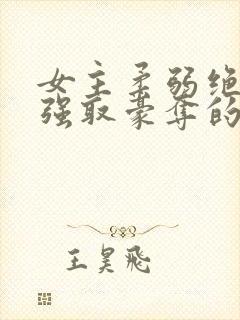 女主柔弱绝
强取豪夺的
王昊飛